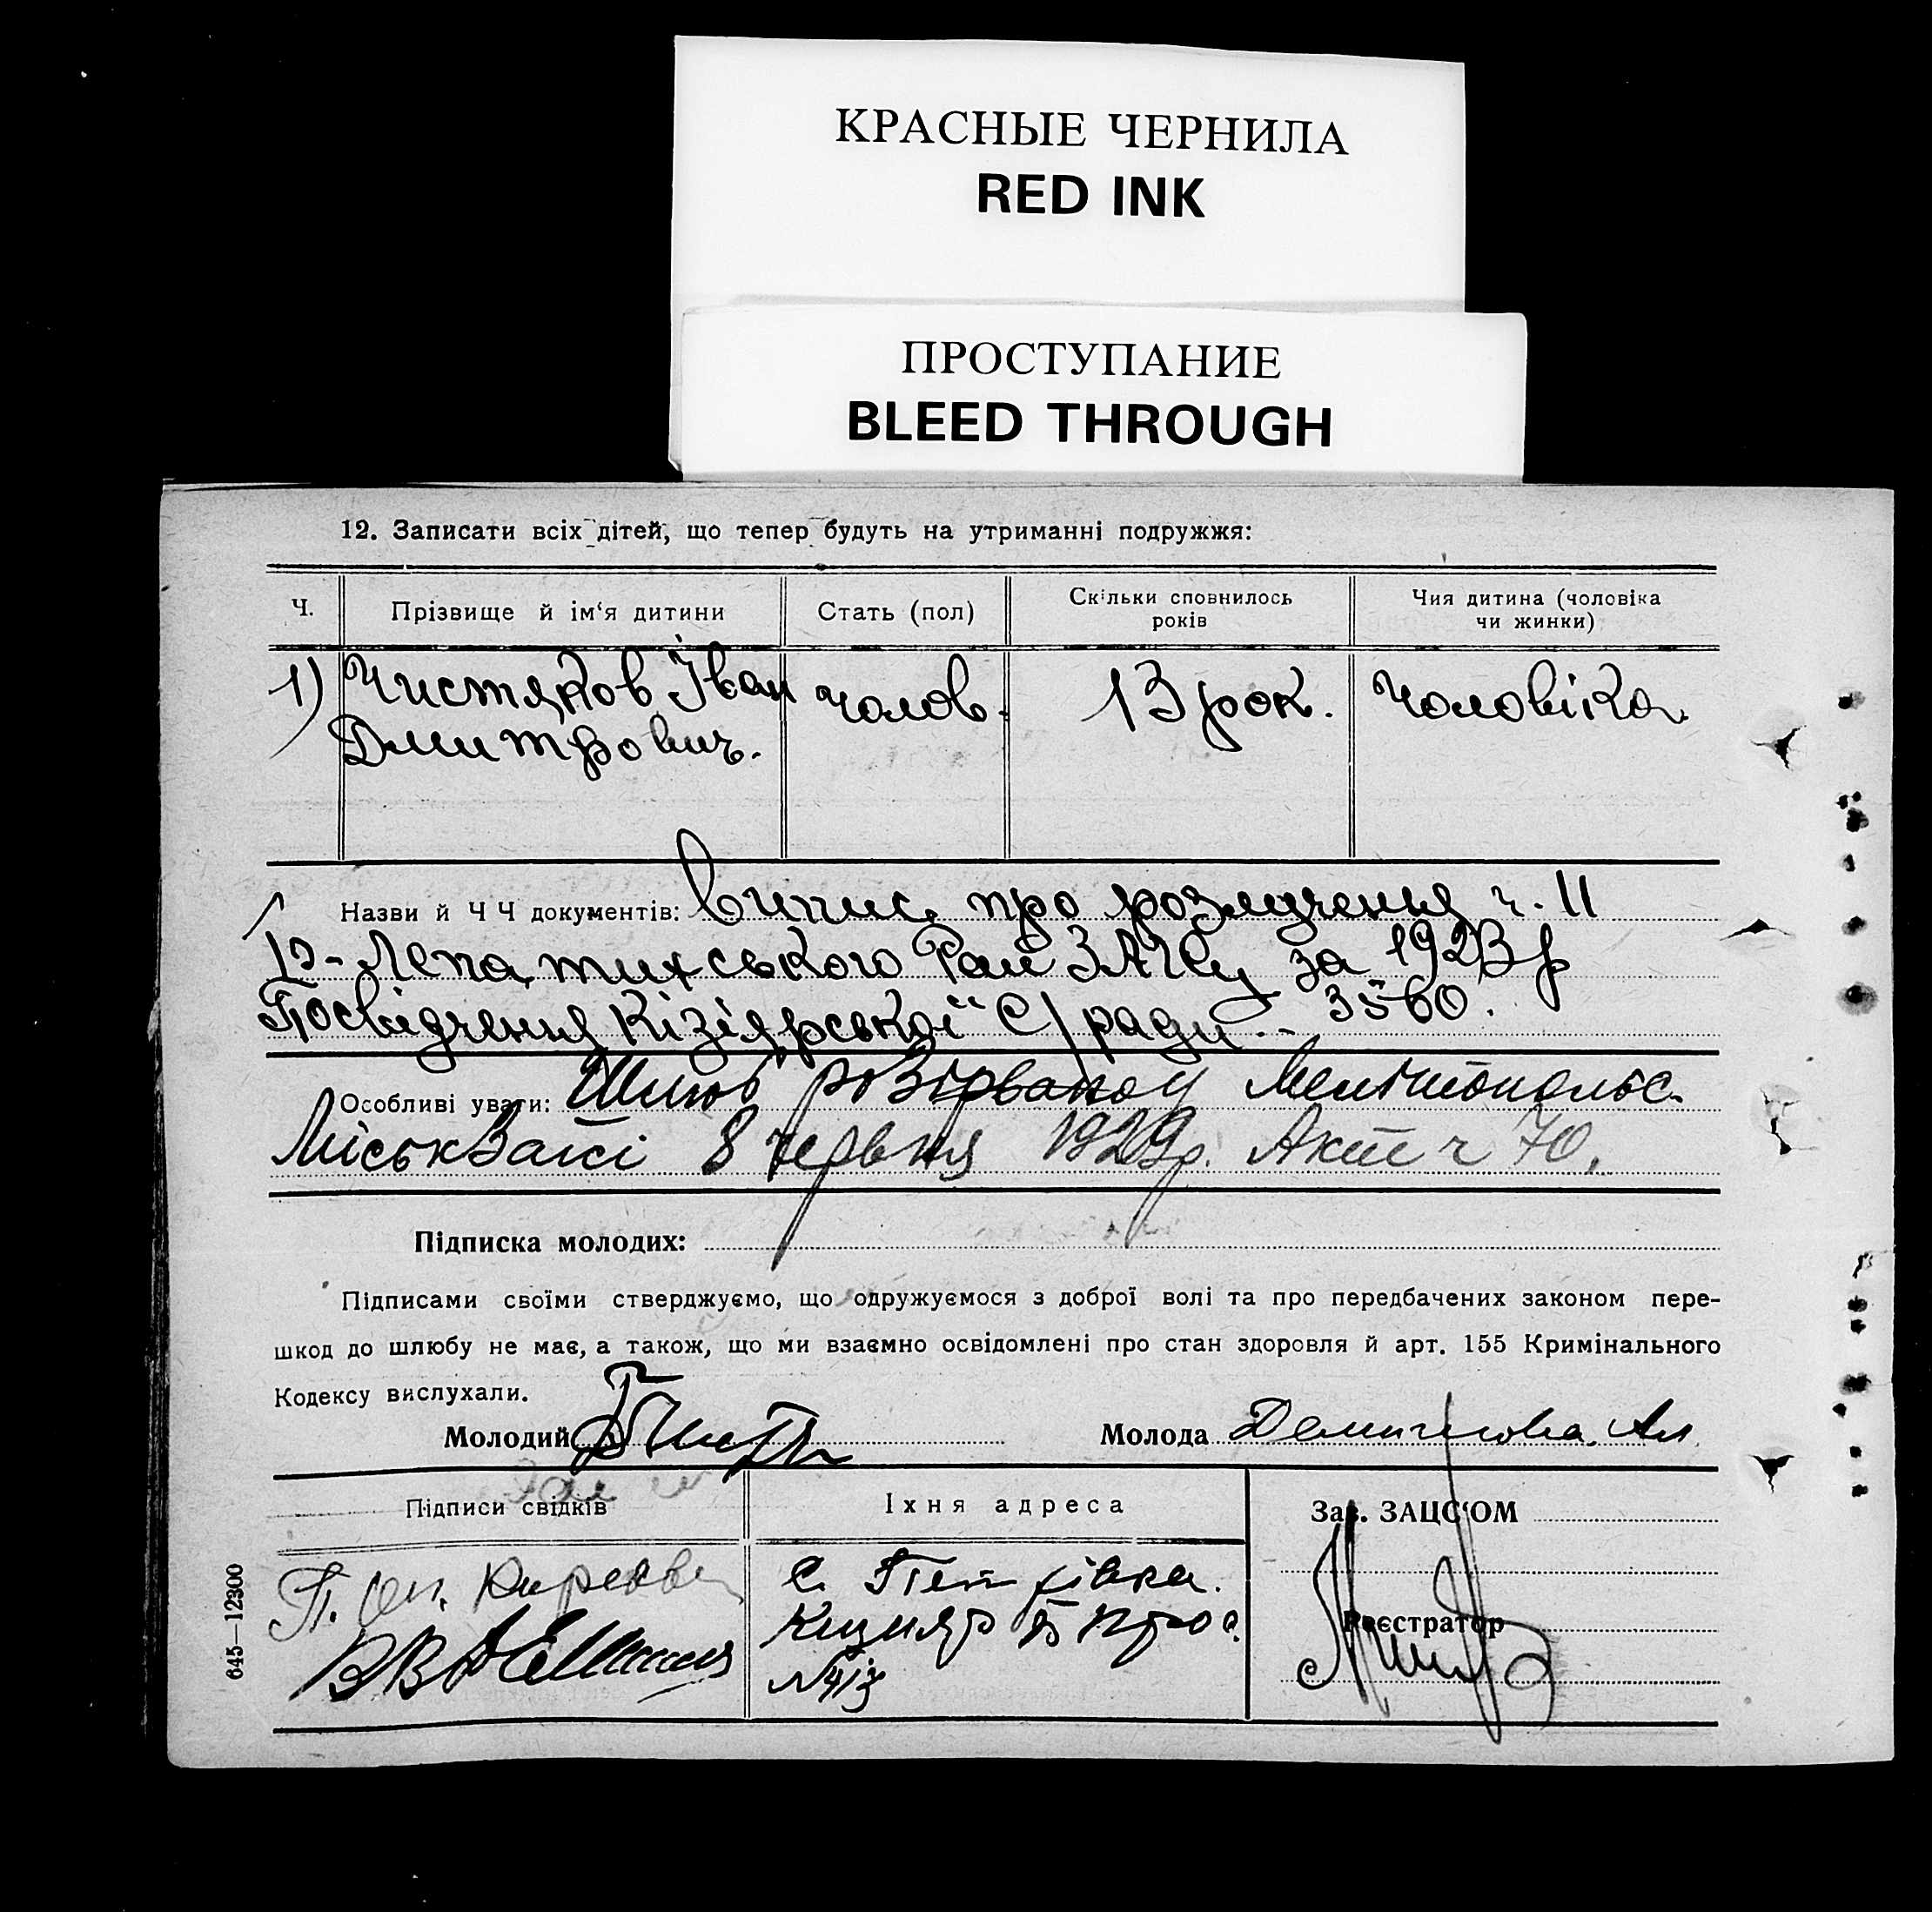 КРАСНЫЕ ЧЕРНИЛА
RED INK
ПРОСТУПАНИЕ
BLEED THROUGH
12. Записати всіх дітей, що тепер будуть на утриманні подружжя:
Ч. Прізвище й ім‘я дитини Стать (пол) Скільки сповнилось років Чия дитина (чоловіка чи жинки)
1) Чистяков Іван чолов. 13 рок. Чоловіка
Дмитрович.
Назви й Ч Ч документів: Випис про розлучення ч. 11
В-Лепатихського Рай ЗАГСу за 1923 р
Посвідчення Кізіярської С/ради 3560.
Особливі уваги: Шлюб розірваной Мелітопольс.
Міськ Загсі 8 червня 1929р. Акт ч 70.
Підписка молодих:
Підписами своїми стверджуємо, що одружуємося з доброї волі та про передбачених законом пере-
шкод до шлюбу не має, а також, що ми взаємно освідомлені про стан здоровля й арт. 155 Кримінального
Кодексу вислухали.
Молодий Молода
Підписи свідків Їхня адреса Зав. ЗАЦС‘ОМ
с.
Кизияр
Реєстратор
645—12300